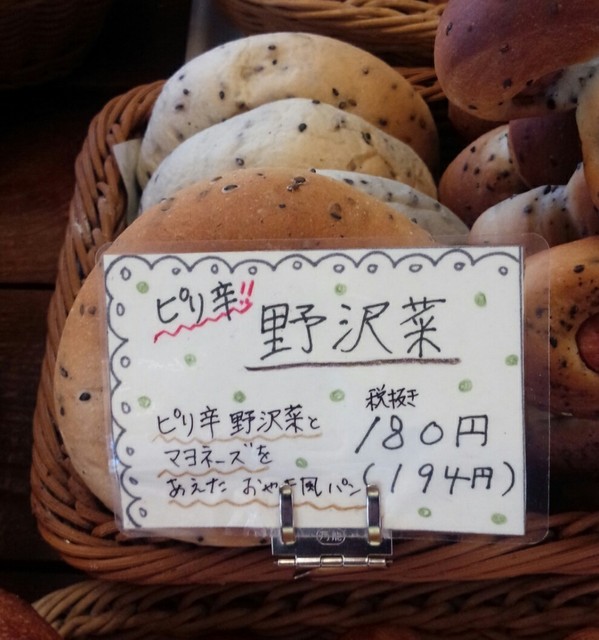 ピリ辛!!
野沢菜
ピリ辛 野沢菜と
マヨネーズを
あえた おやき風パン
税抜き
180円
(194円)